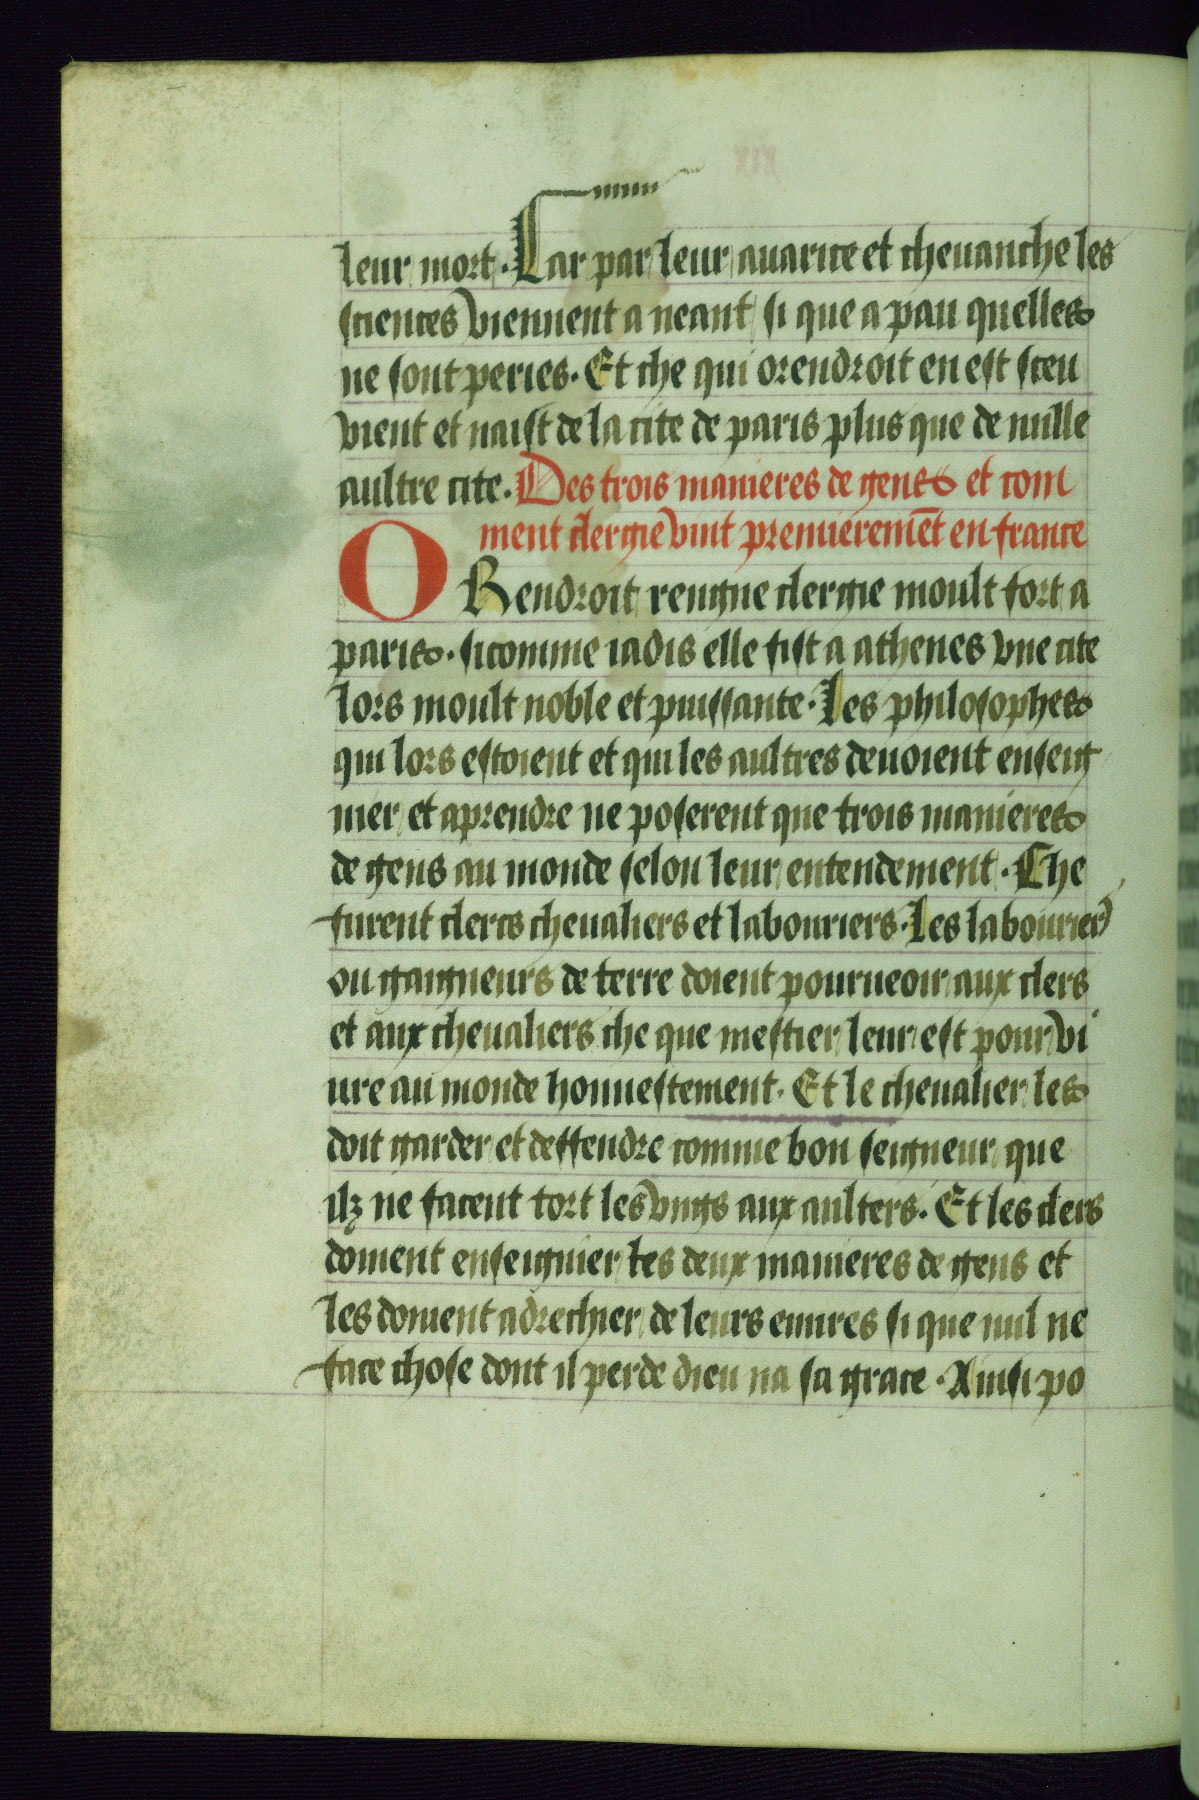 leur mort. Car par leur auarice et cheuanche les
sciences viennent a neant si que a pau quelles
ne sont peries. Et che qui orendroit en est sceu
vient et naist de la cite de paris plus que de nulle
aultre cite. Des trois manieres de gens et com
ment clergie vint premieremēt en france
ORendroit rengne clergie moult fort a
paris. sicomme iadis elle fist a athenes vne cite
lors moult noble et puissante. Les philosophes
qui lors estoient et qui les aultres deuoient enseig
nier et aprendre ne poserent que trois manieres
de gens au monde selon leur entendement. Che
furent clercs cheualiers et labouriers. Les labouriers
ou gaigneurs de terre doient pourueoir aux clers
et aux cheualiers che que mestier leur est pour vi
ure au monde honnestement. Et le cheualier les
doit garder et deffendre comme bon seigneur que
ilz ne facent tort les vngs aux aulters. Et les clers
doiuent enseignier les deux manieres de gens et
les doiuent adrechier de leurs euures si que nul ne
face chose dont il perde dieu na sa grace. Ainsi po